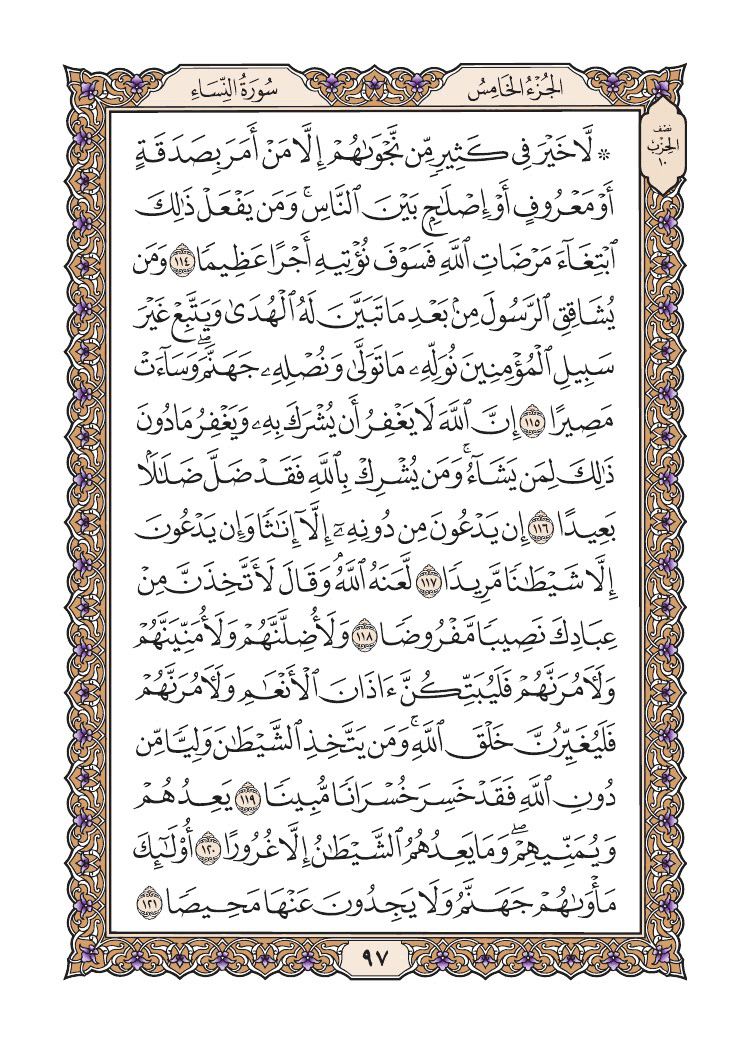 الجُزْءُ الخَامِسُ
سُورَةُ النِّسَاءِ
نصف
الحزب
١٠
۞ لَّا خَيْرَ فِي كَثِيرٍ مِّن نَّجْوَىٰهُمْ إِلَّا مَنْ أَمَرَ بِصَدَقَةٍ
أَوْ مَعْرُوفٍ أَوْ إِصْلَٰحٍۭ بَيْنَ ٱلنَّاسِۚ وَمَن يَفْعَلْ ذَٰلِكَ
ٱبْتِغَآءَ مَرْضَاتِ ٱللَّهِ فَسَوْفَ نُؤْتِيهِ أَجْرًا عَظِيمًا ١١٤ وَمَن
يُشَاقِقِ ٱلرَّسُولَ مِنۢ بَعْدِ مَا تَبَيَّنَ لَهُ ٱلْهُدَىٰ وَيَتَّبِعْ غَيْرَ
سَبِيلِ ٱلْمُؤْمِنِينَ نُوَلِّهِۦ مَا تَوَلَّىٰ وَنُصْلِهِۦ جَهَنَّمَۖ وَسَآءَتْ
مَصِيرًا ١١٥ إِنَّ ٱللَّهَ لَا يَغْفِرُ أَن يُشْرَكَ بِهِۦ وَيَغْفِرُ مَا دُونَ
ذَٰلِكَ لِمَن يَشَآءُۚ وَمَن يُشْرِكْ بِٱللَّهِ فَقَدْ ضَلَّ ضَلَٰلًۢا
بَعِيدًا ١١٦ إِن يَدْعُونَ مِن دُونِهِۦٓ إِلَّآ إِنَٰثًا وَإِن يَدْعُونَ
إِلَّا شَيْطَٰنًا مَّرِيدًا ١١٧ لَّعَنَهُ ٱللَّهُۘ وَقَالَ لَأَتَّخِذَنَّ مِنْ
عِبَادِكَ نَصِيبًا مَّفْرُوضًا ١١٨ وَلَأُضِلَّنَّهُمْ وَلَأُمَنِّيَنَّهُمْ
وَلَـَٔامُرَنَّهُمْ فَلَيُبَتِّكُنَّ ءَاذَانَ ٱلْأَنْعَٰمِ وَلَـَٔامُرَنَّهُمْ
فَلَيُغَيِّرُنَّ خَلْقَ ٱللَّهِۚ وَمَن يَتَّخِذِ ٱلشَّيْطَٰنَ وَلِيًّا مِّن
دُونِ ٱللَّهِ فَقَدْ خَسِرَ خُسْرَانًا مُّبِينًا ١١٩ يَعِدُهُمْ
وَيُمَنِّيهِمْۖ وَمَا يَعِدُهُمُ ٱلشَّيْطَٰنُ إِلَّا غُرُورًا ١٢٠ أُو۟لَٰٓئِكَ
مَأْوَىٰهُمْ جَهَنَّمُ وَلَا يَجِدُونَ عَنْهَا مَحِيصًا ١٢١
٩٧